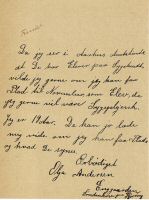 Da jeg ser i Aarhus Amtstidende
at De har Elever paa Sygehuset,
vilde jeg gerne om jeg kan faa
Plads til November som Elev, da
jeg gerne vil være Sygeplejersk.
Jeg er 19 Aar. De kan jo lade
mig vide om jeg kan faa Plads
og hvad De synes.
Ærbødigst
Olga Andersen